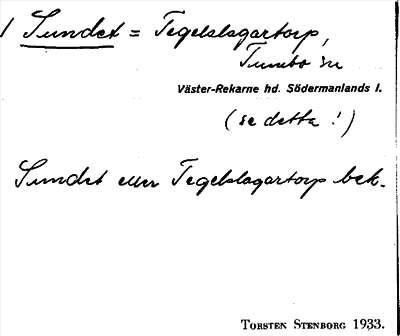 / Sundet = Tegelslagartorp,
Tumbo sn
Väster-Rekarne hd. Södermanlands l.
(se detta!)
Sundet eller Tegelslagartorp bek.
TORSTEN STENBORG 1933.